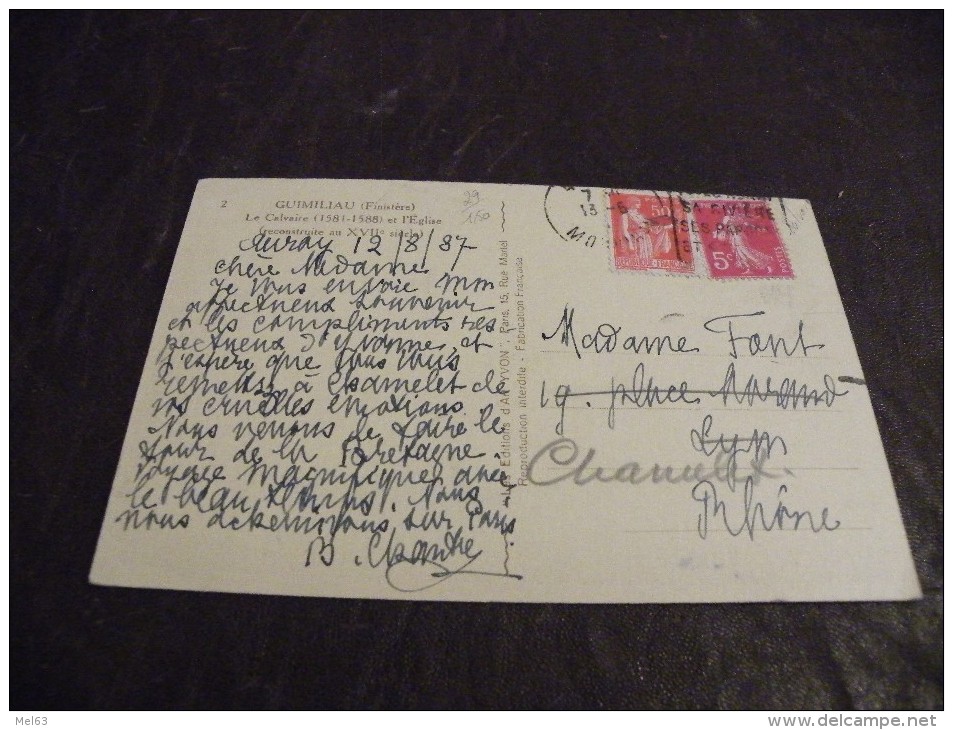 2
GUIMILIAU (Finistère)
Le Calvaire (1581-1588) et l'Église
(reconstruite au XVIIe siècle)
29
150
Auray 12/8/37
chère Madame
Je vous envoie mon
affectueux souvenir
et les compliments res
pectueux d'Yvonne et
j'espère que vous vous
remettez à Chamelet de
vos cruelles émotions.
Nous venons de faire le
tour de la Bretagne.
voyage magnifique avec
le beau temps. Nous
nous acheminons sur Paris.
B. Chantre
"Les Editions d'Art YVON", Paris, 15, Rue Martel
Reproduction interdite - Fabrication Française
7
13 -8
MORBIHAN
SA RIVIÈRE
SES
ET
50
REPUBLIQUE FRANCAISE
5c
POSTES
Madame Font
19. place Morand
Lyon
Chamelet.
Rhône
Mel63
www.delcampe.net